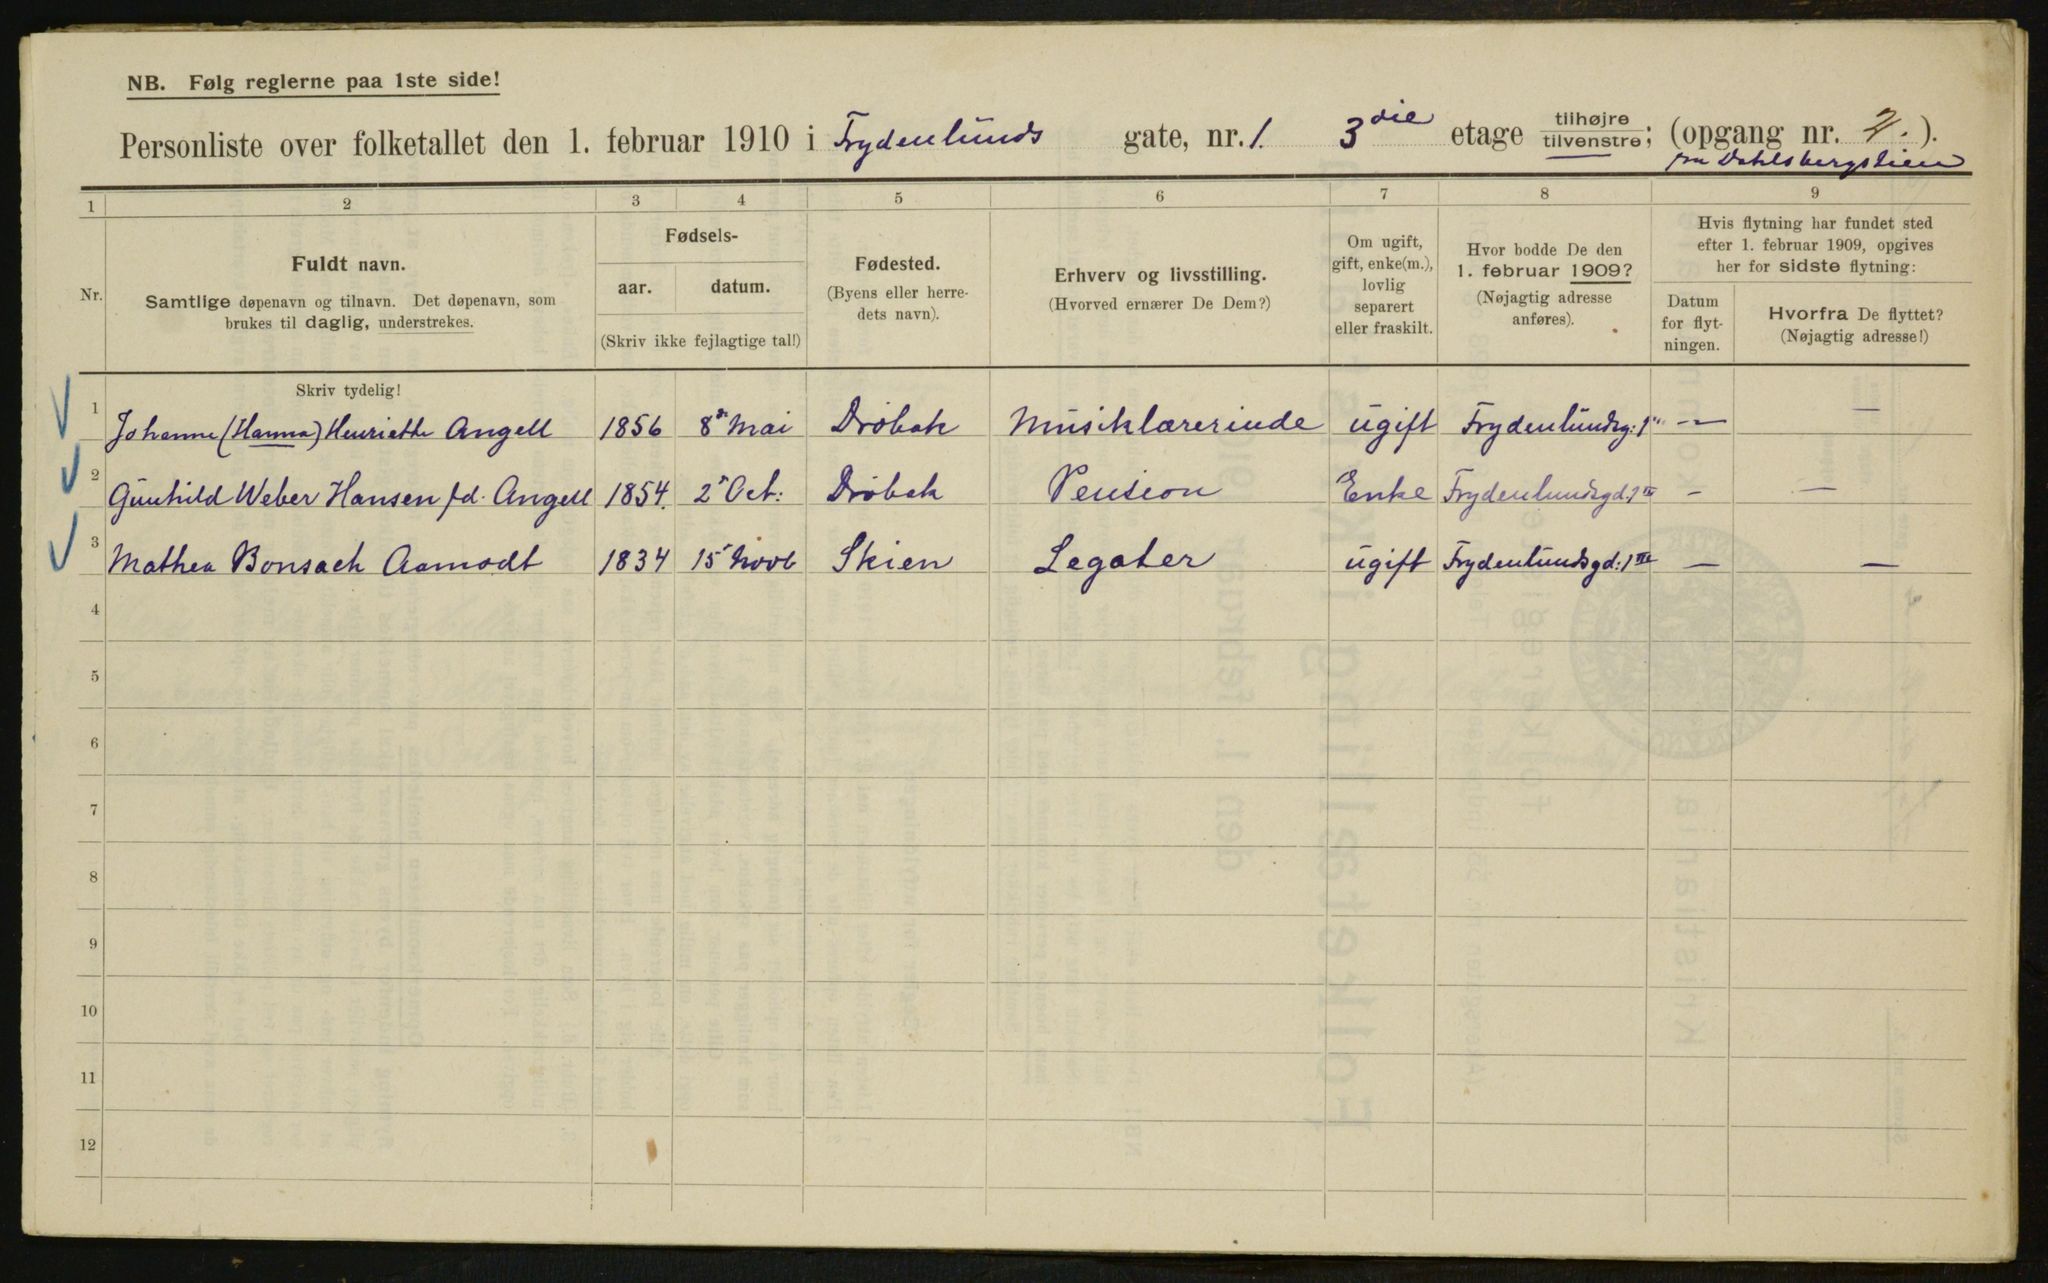 NB. Følg reglerne paa 1ste side!
Personliste over folketallet den 1. februar 1910 i Frydenlunds gate, nr. 1. 3die etage tilhøjre tilvenstre; (opgang nr. 2.).
fra Dahlsbergstien
1 2 3 4 5 6 7 8 9
Nr.
Fuldt navn.
Samtlige døpenavn og tilnavn. Det døpenavn, som
brukes til daglig, understrekes.
Fødsels-
aar. datum.
(Skriv ikke fejlagtige tal!)
Fødested.
(Byens eller herre-
dets navn).
Erhverv og livsstilling.
(Hvorved ernærer De Dem?)
Om ugift,
gift, enke(m.),
lovlig
separert
eller fraskilt.
Hvor bodde De den
1. februar 1909?
(Nøjagtig adresse
anføres).
Hvis flytning har fundet sted
efter 1. februar 1909, opgives
her for sidste flytning:
Datum
for flyt-
ningen.
Hvorfra De flyttet?
(Nøjagtig adresse!)
Skriv tydelig!
1 Johanne (Hanna) Henriette Angell 1856 8de Mai Drøbak Musiklærerinde ugift Frydenlundsg: 1 — —
2 Gunhild Weber Hansen fd. Angell 1854. 2 Oct: Drøbak Pension Enke Frydenlundsgd. 1 III — —
3 Mathea Bonsach Aamodt 1834 15 Novb Skien Legater ugift Frydenlundsgd: 1 III — —
4
5
6
7
8
9
10
11
12